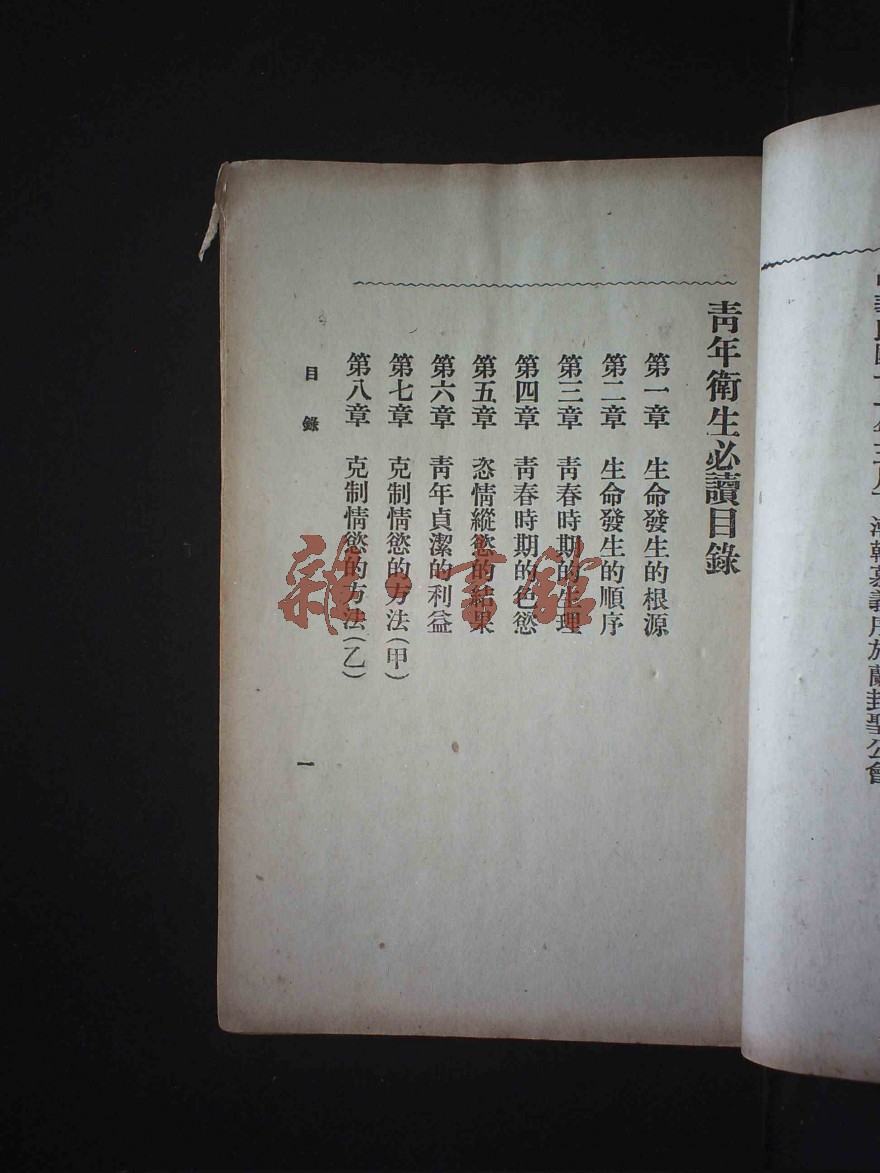 中華民國十一年三月 潍韓慕義序於蘭封聖公會
靑年衛生必讀目錄
第一章 生命發生的根源
第二章 生命發生的順序
第三章 靑春時期的生理
第四章 靑春時期的色慾
第五章 恣情縱慾的結果
第六章 靑年貞潔的利益
第七章 克制情慾的方法(甲)
第八章 克制情慾的方法(乙)
目錄
一
雜·書館